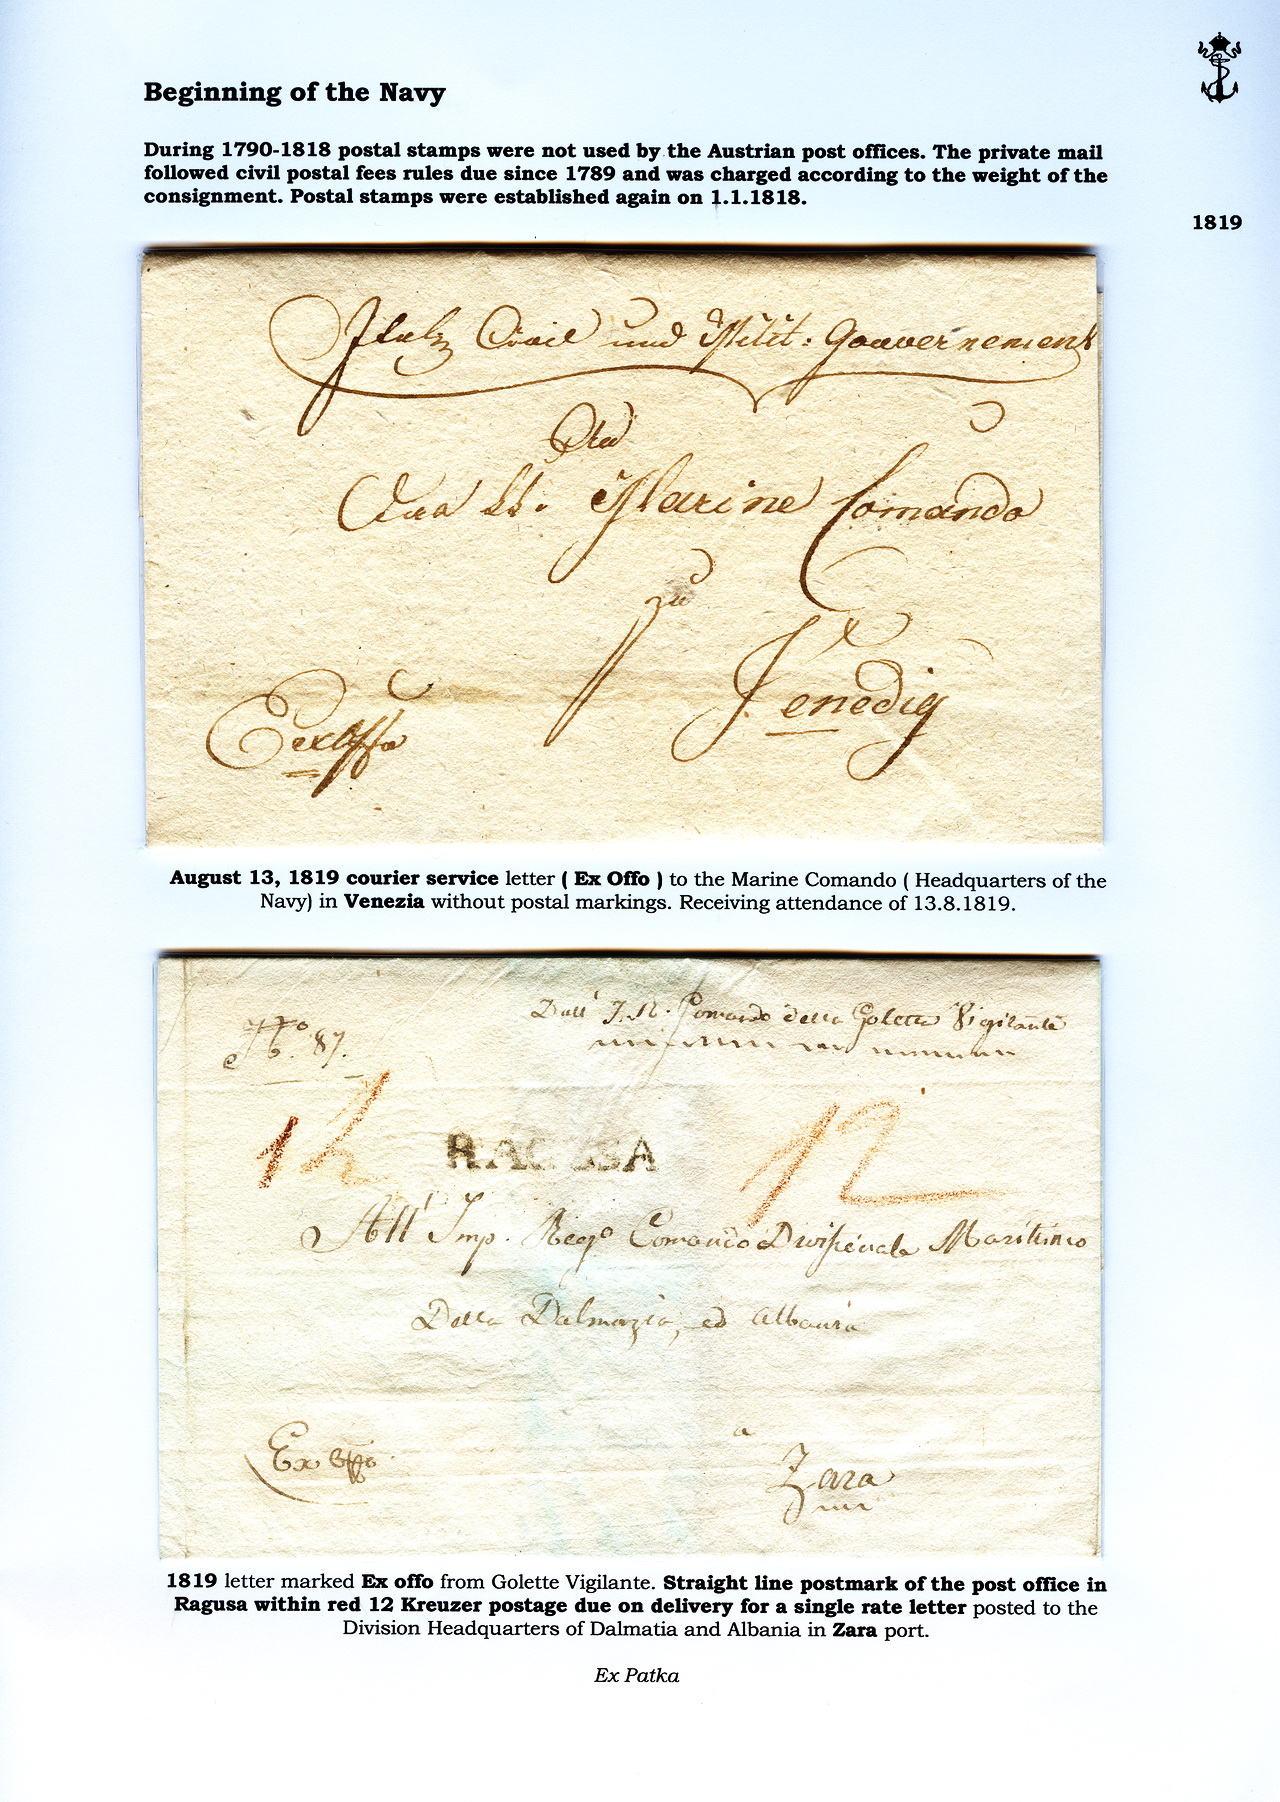 Beginning of the Navy
During 1790-1818 postal stamps were not used by the Austrian post offices. The private mail
followed civil postal fees rules due since 1789 and was charged according to the weight of the
consignment. Postal stamps were established again on 1.1.1818.
1819
Civil und Milit: Gouvernement
An
Das kk. Marine Comando
zu
Venedig
Exoffo
August 13, 1819 courier service letter ( Ex Offo ) to the Marine Comando ( Headquarters of the
Navy) in Venezia without postal markings. Receiving attendance of 13.8.1819.
Dall' I. R. Comando della Goletta Vigilante
87.
12 RAGUSA 12
All' Imp. Regº Comando Divisionale Marittimo
Della Dalmazia, ed Albania
a
Ex offo Zara
1819 letter marked Ex offo from Golette Vigilante. Straight line postmark of the post office in
Ragusa within red 12 Kreuzer postage due on delivery for a single rate letter posted to the
Division Headquarters of Dalmatia and Albania in Zara port.
Ex Patka